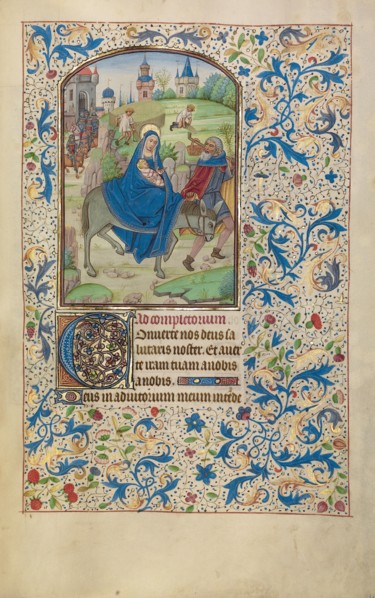 Ad completorium.
Onuerte nos deus sa
lutaris noster. Et auer
te iram tuam a nobis
a nobis.
Deus in adiutorium meum intende